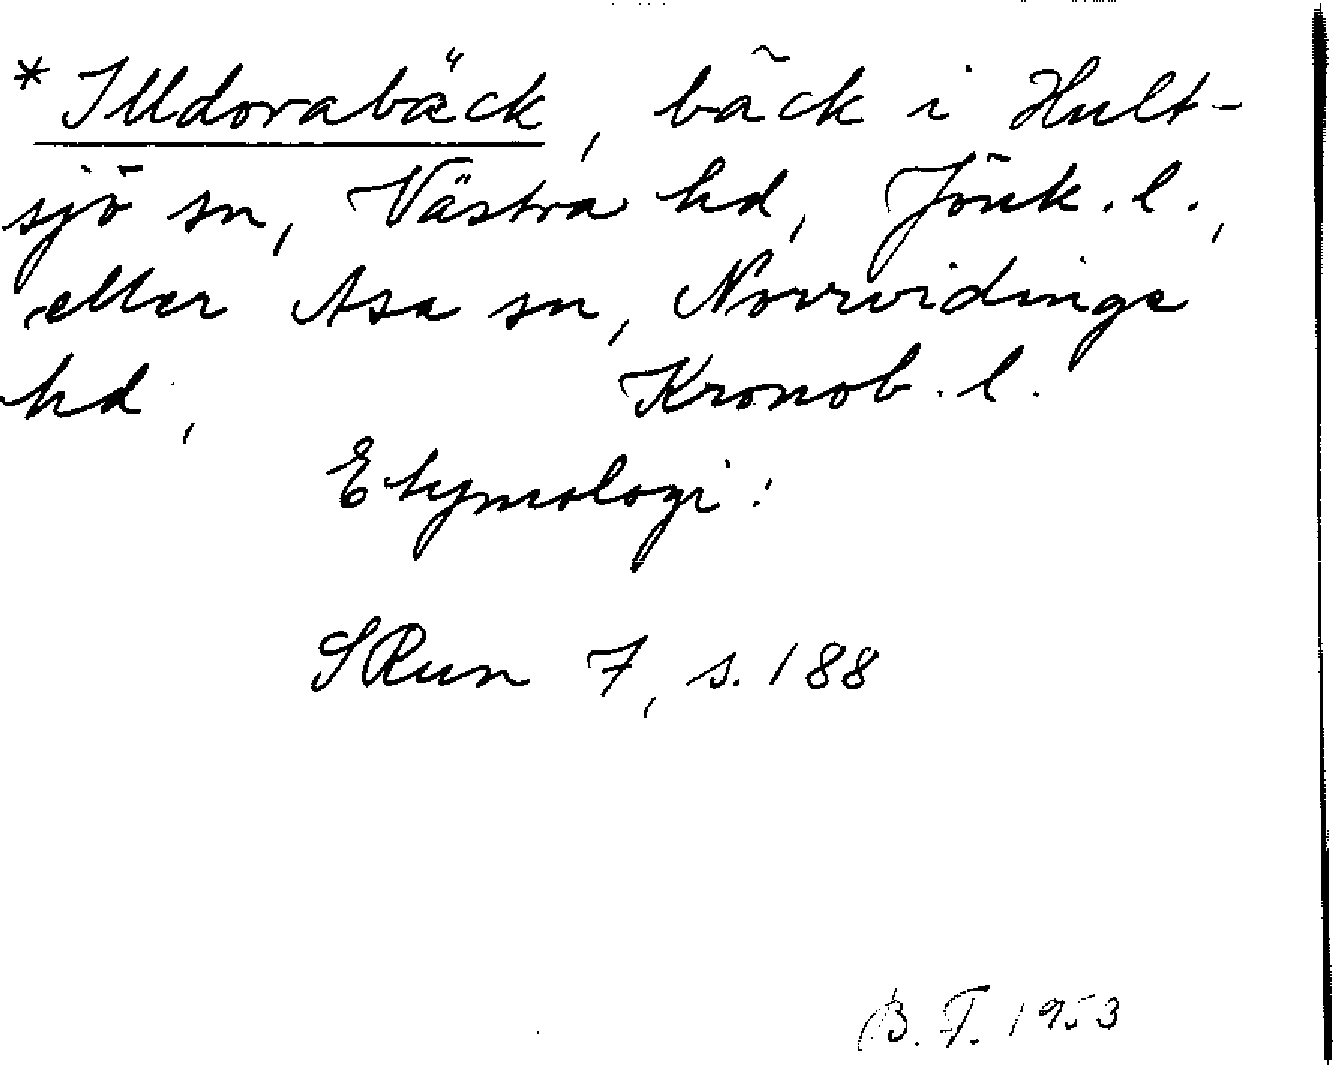 *Illdorabäck, bäck i Hult-
sjö sn, Västra hd, Jönk.l.,
eller Asa sn, Norrvidinge
hd, Kronob.l.
Etymologi:
SRun 7, s. 188
B.T. 1953